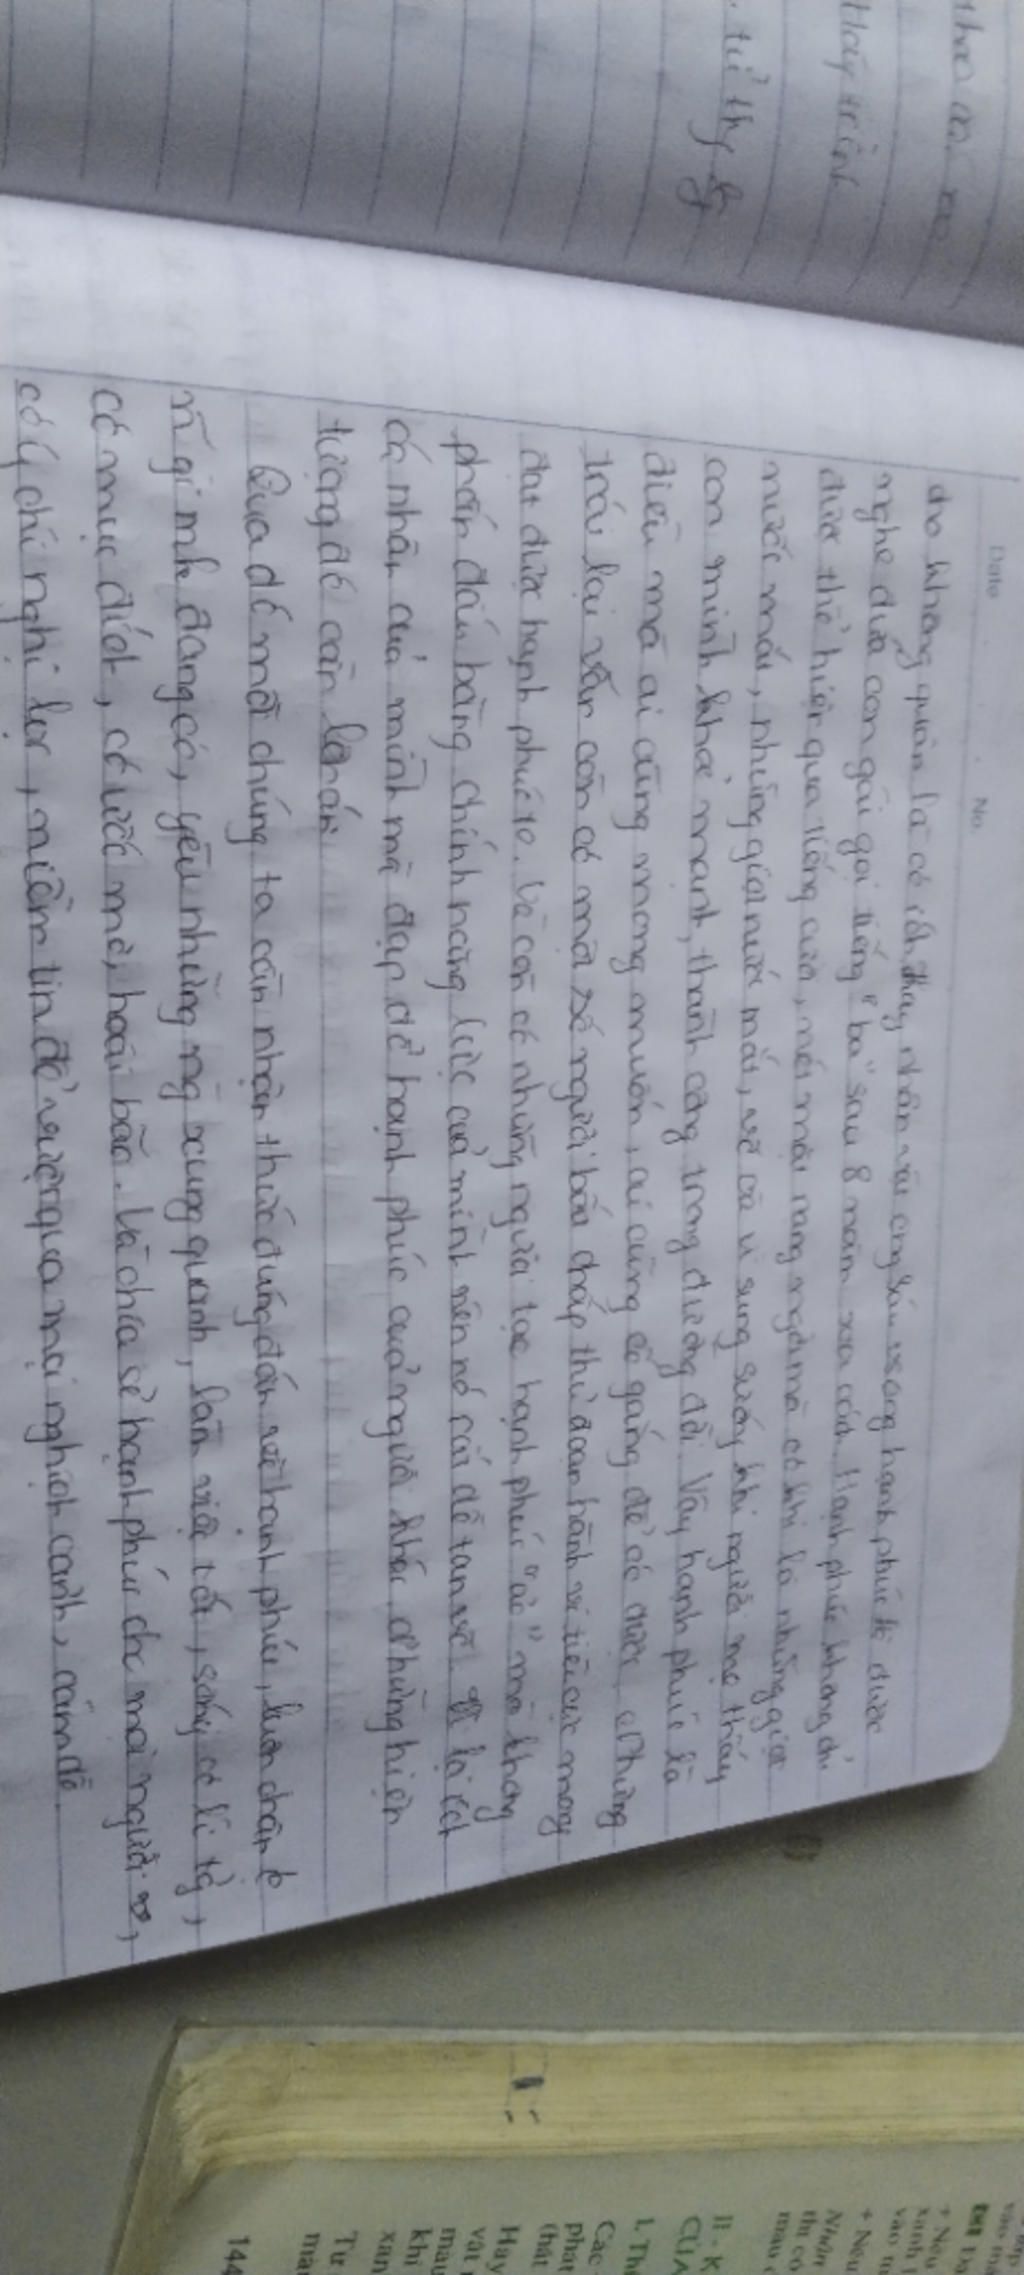 Date No.
cho không quân là có thật. Hay nhân vật ông Sáu trong hạnh phúc là được
nghe đứa con gái gọi tiếng "ba" sau 8 năm xa cách. Hạnh phúc không chỉ
được thể hiện qua tiếng cười, nét mặt rạng ngời mà có khi là những giọt
nước mắt, những giọt nước mắt, vỡ òa vì sung sướng khi người mẹ thấy
con mình khỏe mạnh, thành công trong đường đời. Vậy hạnh phúc là
điều mà ai cũng mong muốn, ai cũng cố gắng để có được. Nhưng
trái lại vẫn còn có một số người bất chấp thủ đoạn hành vi tiêu cực mong
đạt được hạnh phúc to. Và còn có những người tạo hạnh phúc "ảo" mà không
phấn đấu bằng chính năng lực của mình nên nó rất dễ tan vỡ. lại ích
cá nhân của mình mà đạp đổ hạnh phúc của người khác. Những hiện
tượng đó cần lên án
Qua đó mỗi chúng ta cần nhận thức đúng đắn về hạnh phúc, luôn trân
n~ gì mk đang có, yêu những ng xung quanh, làm việc tốt, sống có lí tg,
có mục đích, có ước mơ, hoài bão. Và chia sẻ hạnh phúc cho mọi người,
có ý chí nghị lực, niềm tin để vượt qua mọi nghịch cảnh, cám dỗ.
tử thy
Hãy trình
II - K
CỦA
I. Th
Các
phát
(hát
Hay
vật
màu
khi
xan
Từ
mà
144
+ Nếu
xanh
vào
+ Nếu
Nhận
thì có
màu